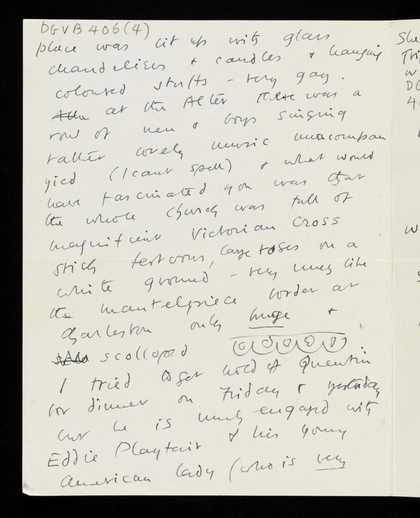 DGVB 406(4)
place was lit up with glass
chandeliers & candles & hanging
coloured stuffs - very gay.
at the Alter there was a
row of men & boys singing
rather lovely music unaccompan
gied (I cant spell) & what would
have fascinated you was that
the whole church was full of
magnificent Victorian cross
stich festoons, large roses on a
white ground - very much like
the mantelpiece border at
Charleston only huge &
scolloped
I tried to get hold of Quentin
for dinner on Friday & yesterday
but he is much engaged with
Eddie Playfair & his young
American lady (who is very
She
Tri
w
DG
4
w